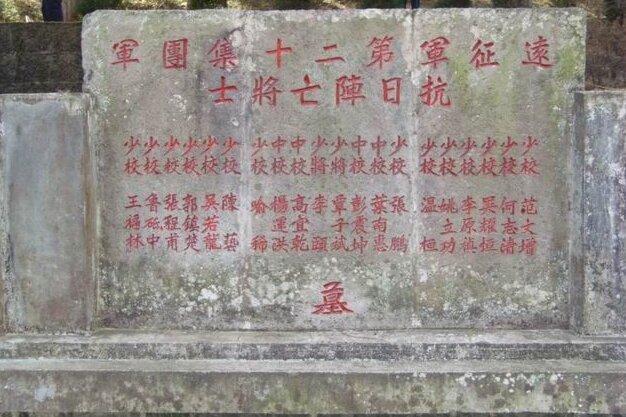 遠征軍第二十集團軍
抗日陣亡將士
少校 范文增
少校 何志清
少校 吳耀恒
少校 李原禛
少校 姚立功
少校 温桓
少校 張鵬
中校 葉南惠
中校 彭震坤
少將 覃子斌
少將 李頤
中校 高宜乾
中校 楊運洪
少校 喻稀
少校 陳藝
少校 吳若龍
少校 郭鎮楚
少校 張程甫
少校 魯砥中
少校 王福林
墓